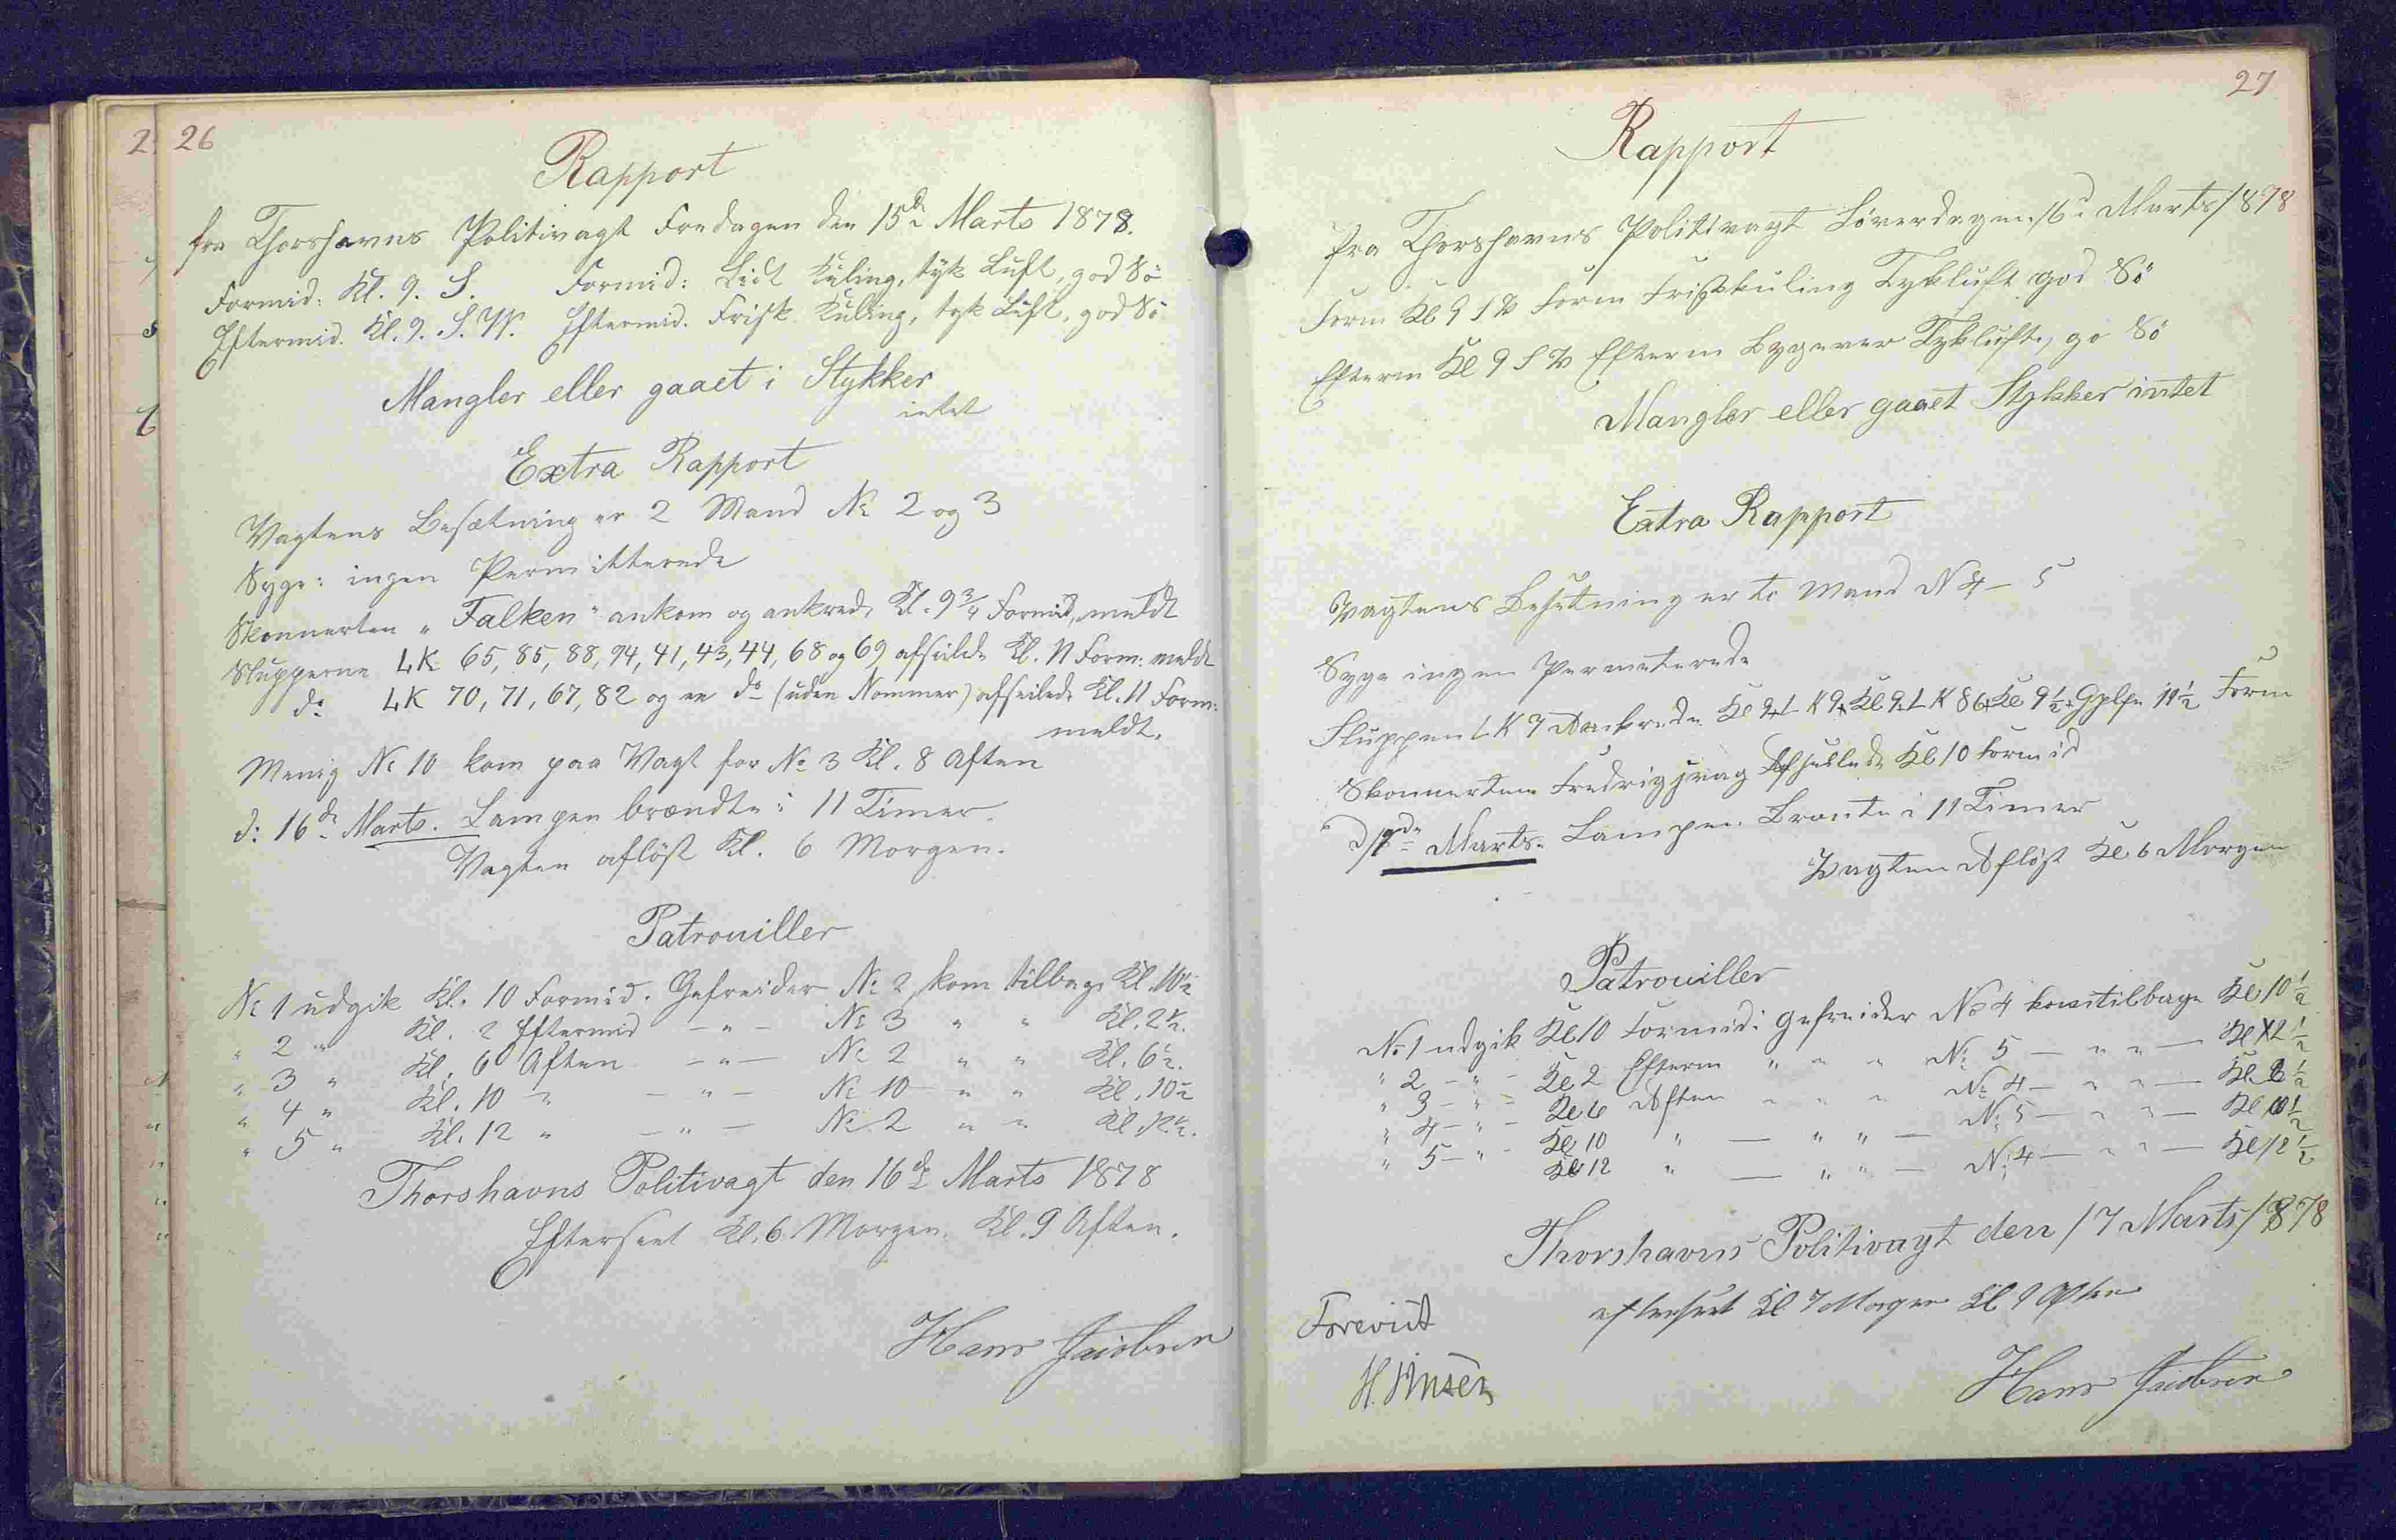 26
Rapport
fra Thorshavns Politivagt Fredagen den 15de Marts 1878.
Formid: Kl. 9. S. Formid: Lidt Kuling, tyk Luft, god Sö
Eftermid. Kl. 9. S.W. Eftermid. Frisk Kuling, tyk Luft, god Sö
Mangler eller gaaet i Stykker
intet
Extra Rapport
Vagtens Besætning er 2 Mand No 2 og 3
Syge: ingen Permitterede
Skonnerten „Falken" ankom og ankrede Kl. 9 3/4 Formid, meldt
Slupperne LK 65, 85, 88, 94, 41, 43, 44, 68 og 69 afseilede Kl. 11 Form: meldt
do LK 70, 71, 67, 82 og en do (uden Nommer) afseilede Kl. 11 Form:
meldt.
Menig No 10 kom paa Vagt for No 3 Kl. 8 Aften
d: 16de Marts. Lampen brændte i 11 Timer.
Vagten aflöst Kl. 6 Morgen.
Patrouiller
No 1 udgik Kl. 10 Formid. Gefreider No 2 kom tilbage Kl. 10½
" 2 " Kl. 2 Eftermid - " - No 3 " " Kl. 2½.
" 3 " Kl. 6 Aften - " - No 2 " " Kl. 6½.
" 4 " Kl. 10 " - " - No 10 " " Kl. 10½
" 5 " Kl. 12 " - " - No 2 " " Kl. 12½.
Thorshavns Politivagt den 16de Marts 1878
Efterseet Kl. 6 Morgen. Kl. 9 Aften.
Hans Jacobsen
27
Rapport
fra Thorshavns Politivagt Löverdagen 16d Marts 1878
Form Kl 9 S W Form Friskkuling Tykluft god Sö
Efterm Kl 9 S W Efterm Bygever Tykluft, go Sö
Mangler eller gaaet Stykker intet
Extra Rapport
Vagtens Besetning er to Mand N 4 - 5
Syge ingen Permeterede
Sluppen LK 7 Aankrede Kl 9 + LK 9 + Kl 9 + LK 86 + Kl 9½ + 11½ Form
Skonnerten Kl 10 Formid
d 17de Marts. Lampen Brente i 11 Timer
Vagten Aflöst Kl. 6 Morgen
Patrouiller
No 1 udgik Kl 10 Formid: Gefreider No 4 kom tilbage Kl 10½
" 2 - " - Kl 2 Efterm " " " No 5 — " " — Kl 2½
" 3 - " - Kl 6 Aften " " " No 4 — " " — Kl. 6½
" 4 - " - Kl 10 " — " " — No 5 — " " — Kl 10½
" 5 - " - Kl 12 " — " " — No 4 — " " — Kl 12½
Thorshavns Politivagt den 17 Marts 1878
efterseet Kl 7 Morgen Kl 9 Aften
Forevist
Hans Jacobsen